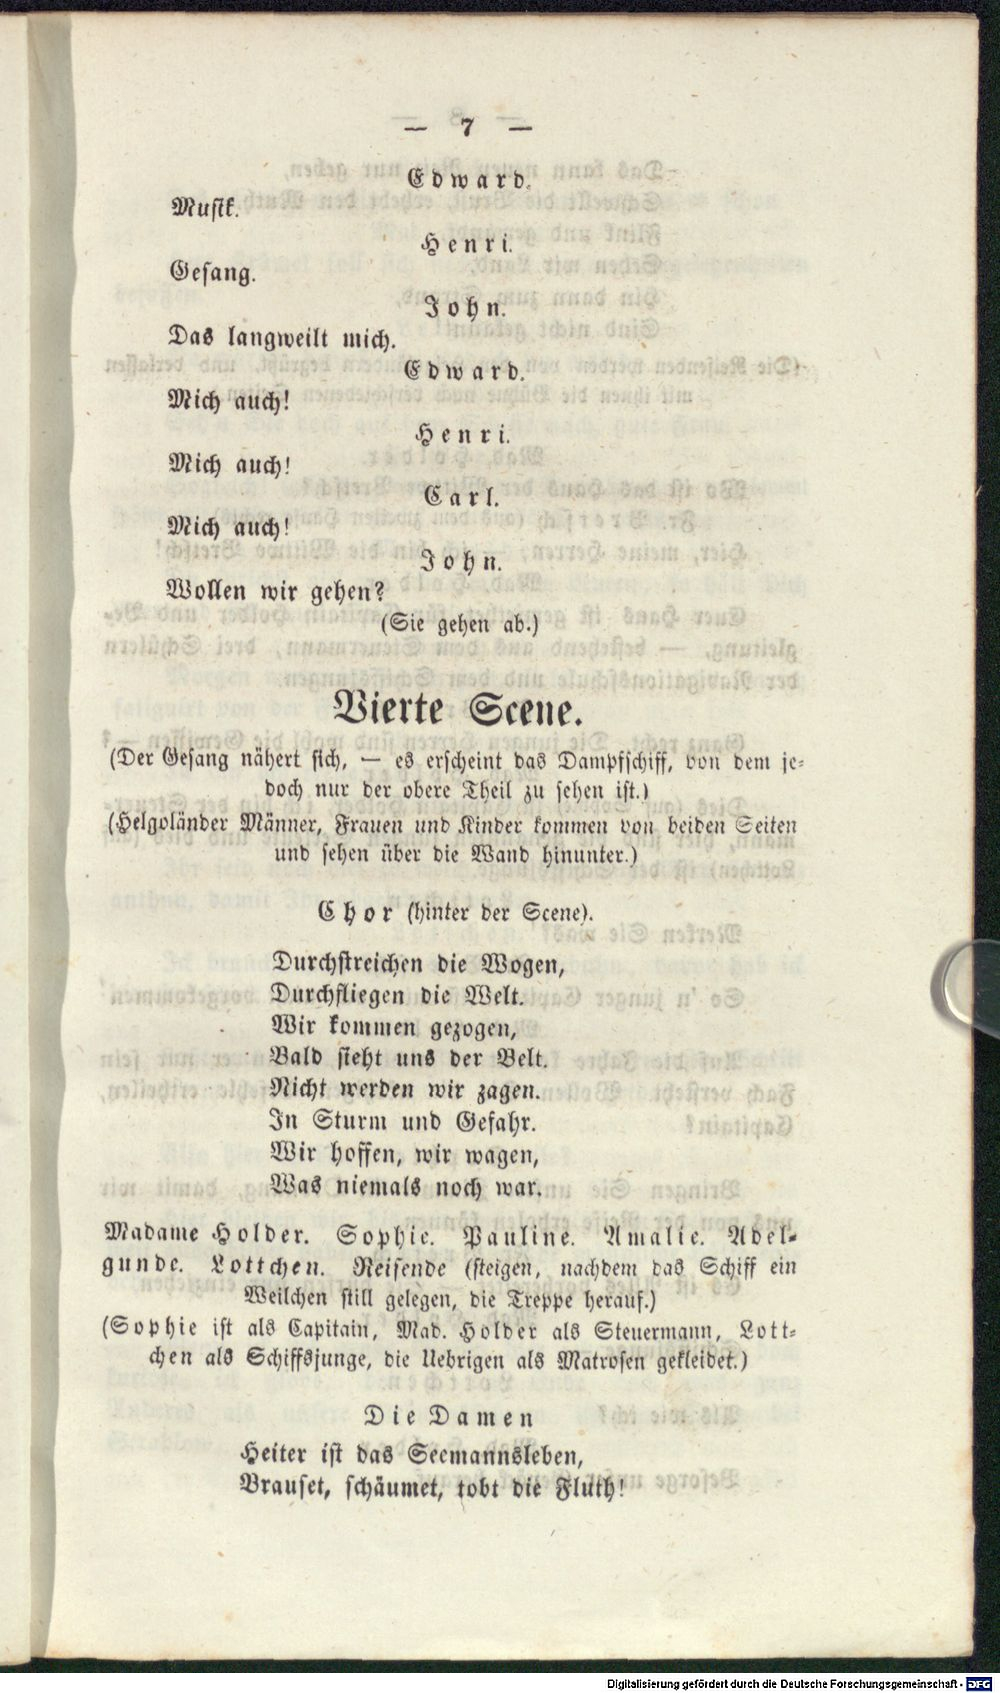 — 7 —
Edward.
Musik.
Henri.
Gesang.
John.
Das langweilt mich.
Edward.
Mich auch!
Henri.
Mich auch!
Carl.
Mich auch!
John.
Wollen wir gehen?
(Sie gehen ab.)
Vierte Scene.
(Der Gesang nähert sich, — es erscheint das Dampfschiff, von dem je-
doch nur der obere Theil zu sehen ist.)
(Helgoländer Männer, Frauen und Kinder kommen von beiden Seiten
und sehen über die Wand hinunter.)
Chor (hinter der Scene).
Durchstreichen die Wogen,
Durchfliegen die Welt.
Wir kommen gezogen,
Bald sieht uns der Belt.
Nicht werden wir zagen.
In Sturm und Gefahr.
Wir hoffen, wir wagen,
Was niemals noch war.
Madame Holder. Sophie. Pauline. Amalie. Adel-
gunde. Lottchen. Reisende (steigen, nachdem das Schiff ein
Weilchen still gelegen, die Treppe herauf.)
(Sophie ist als Capitain, Mad. Holder als Steuermann, Lott-
chen als Schiffsjunge, die Uebrigen als Matrosen gekleidet.)
Die Damen
Heiter ist das Seemannsleben,
Brauset, schäumet, tobt die Fluth!
Digitalisierung gefördert durch die Deutsche Forschungsgemeinschaft - DFG